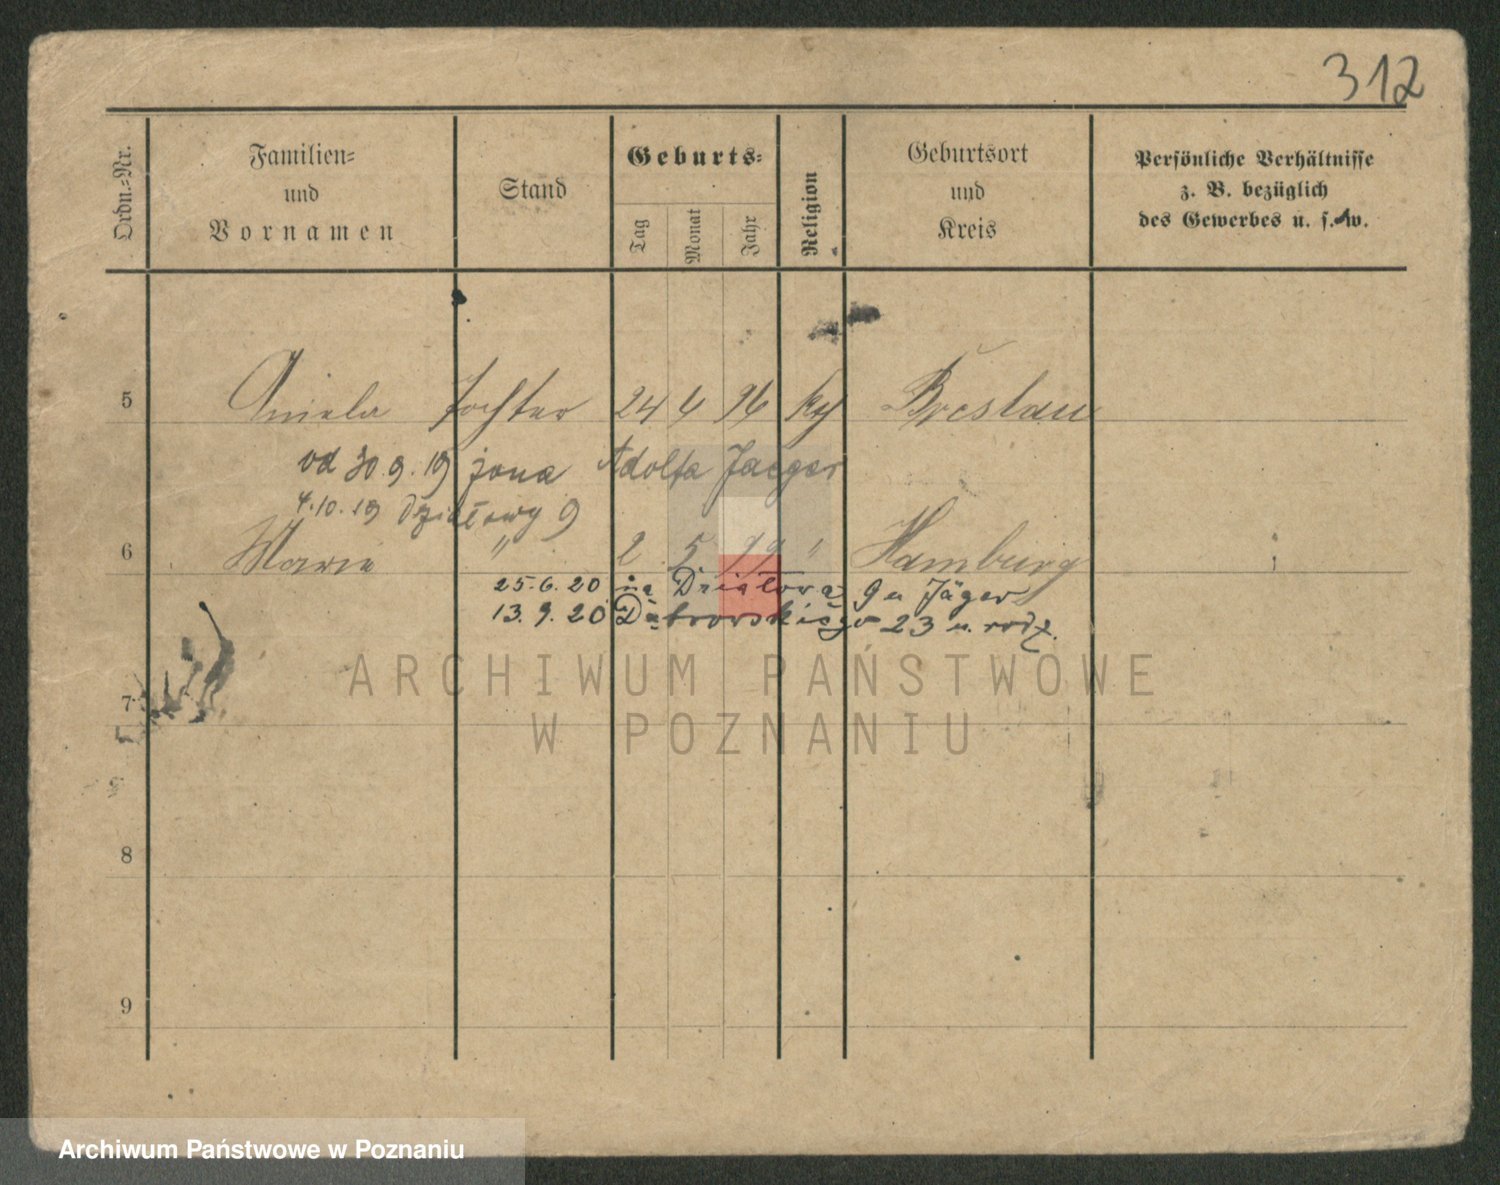 312
Ordn.-Nr.
Familien- und Vornamen
Stand
Geburts-
Tag
Monat
Jahr
Religion
Geburtsort und Kreis
Persönliche Verhältnisse z. B. bezüglich des Gewerbes u. s. w.
5 Aniela Tochter 24 6 96 Breslau
od 30.9.19 żona Adolfa Jaeger
4.10.19 Działowy 9
6 Marie " 2 5 99 " Hamburg
25.6.20 na Działowa 9 u Jäger
13.9.20 Dąbrowskiego 23 u. rodz.
7
8
9
ARCHIWUM PAŃSTWOWE
W POZNANIU
Archiwum Państwowe w Poznaniu